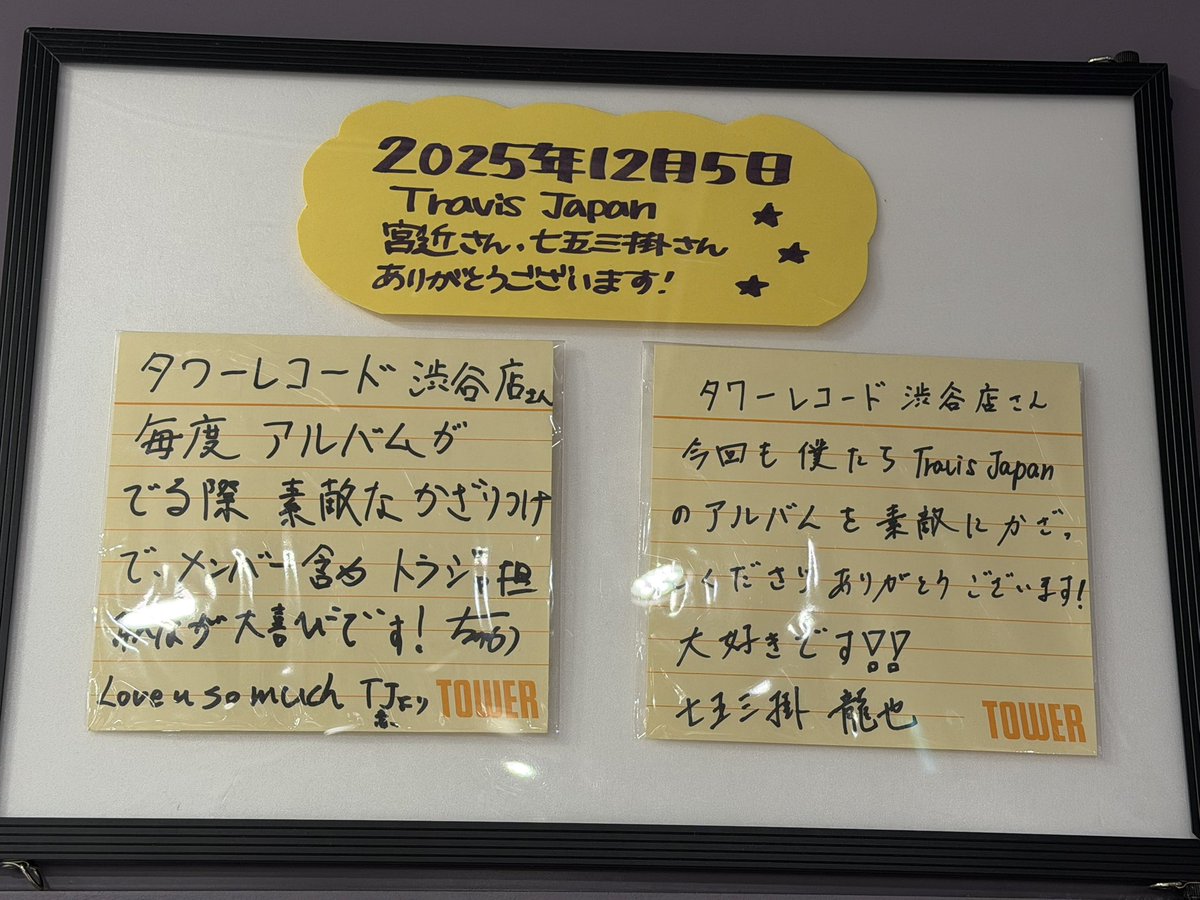 2025年12月5日
Travis Japan
宮近さん・七五三掛さん
ありがとうございます!
タワーレコード 渋谷店さん
毎度 アルバムが
でる際 素敵な かざりつけ
で、メンバー含め トラジャ担
が大喜びです!
Love u so much TJより
TOWER
タワーレコード 渋谷店さん
今回も僕たち Travis Japan
のアルバムを素敵にかざっ
くださり ありがとうございます!
大好きです!!
七五三掛 龍也
TOWER